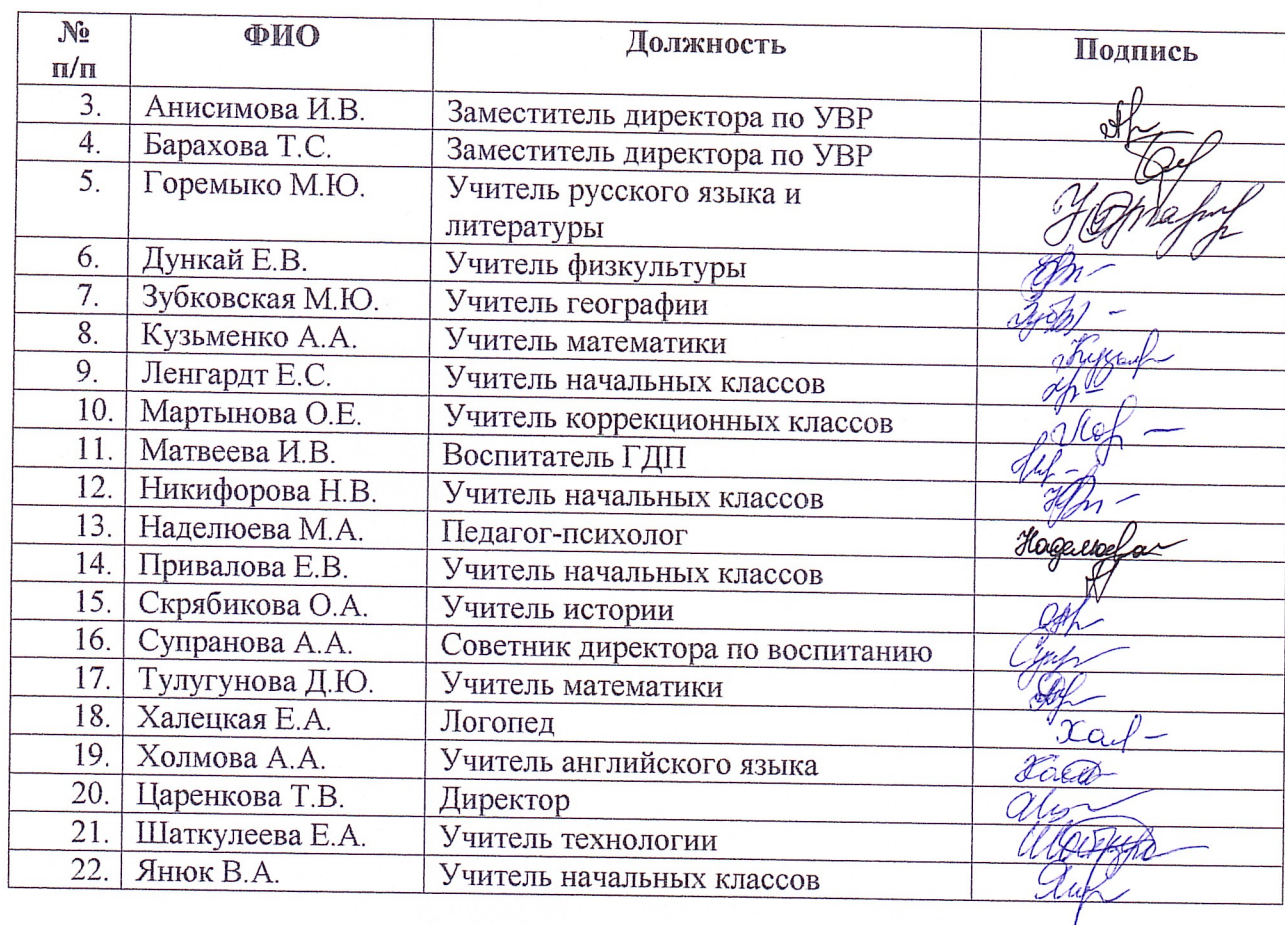 № п/п ФИО Должность Подпись
3. Анисимова И.В. Заместитель директора по УВР
4. Барахова Т.С. Заместитель директора по УВР
5. Горемыко М.Ю. Учитель русского языка и
литературы
6. Дункай Е.В. Учитель физкультуры
7. Зубковская М.Ю. Учитель географии
8. Кузьменко А.А. Учитель математики
9. Ленгардт Е.С. Учитель начальных классов
10. Мартынова О.Е. Учитель коррекционных классов
11. Матвеева И.В. Воспитатель ГДП
12. Никифорова Н.В. Учитель начальных классов
13. Наделюева М.А. Педагог-психолог Наделюева
14. Привалова Е.В. Учитель начальных классов
15. Скрябикова О.А. Учитель истории
16. Супранова А.А. Советник директора по воспитанию
17. Тулугунова Д.Ю. Учитель математики
18. Халецкая Е.А. Логопед Хал
19. Холмова А.А. Учитель английского языка
20. Царенкова Т.В. Директор
21. Шаткулеева Е.А. Учитель технологии
22. Янюк В.А. Учитель начальных классов